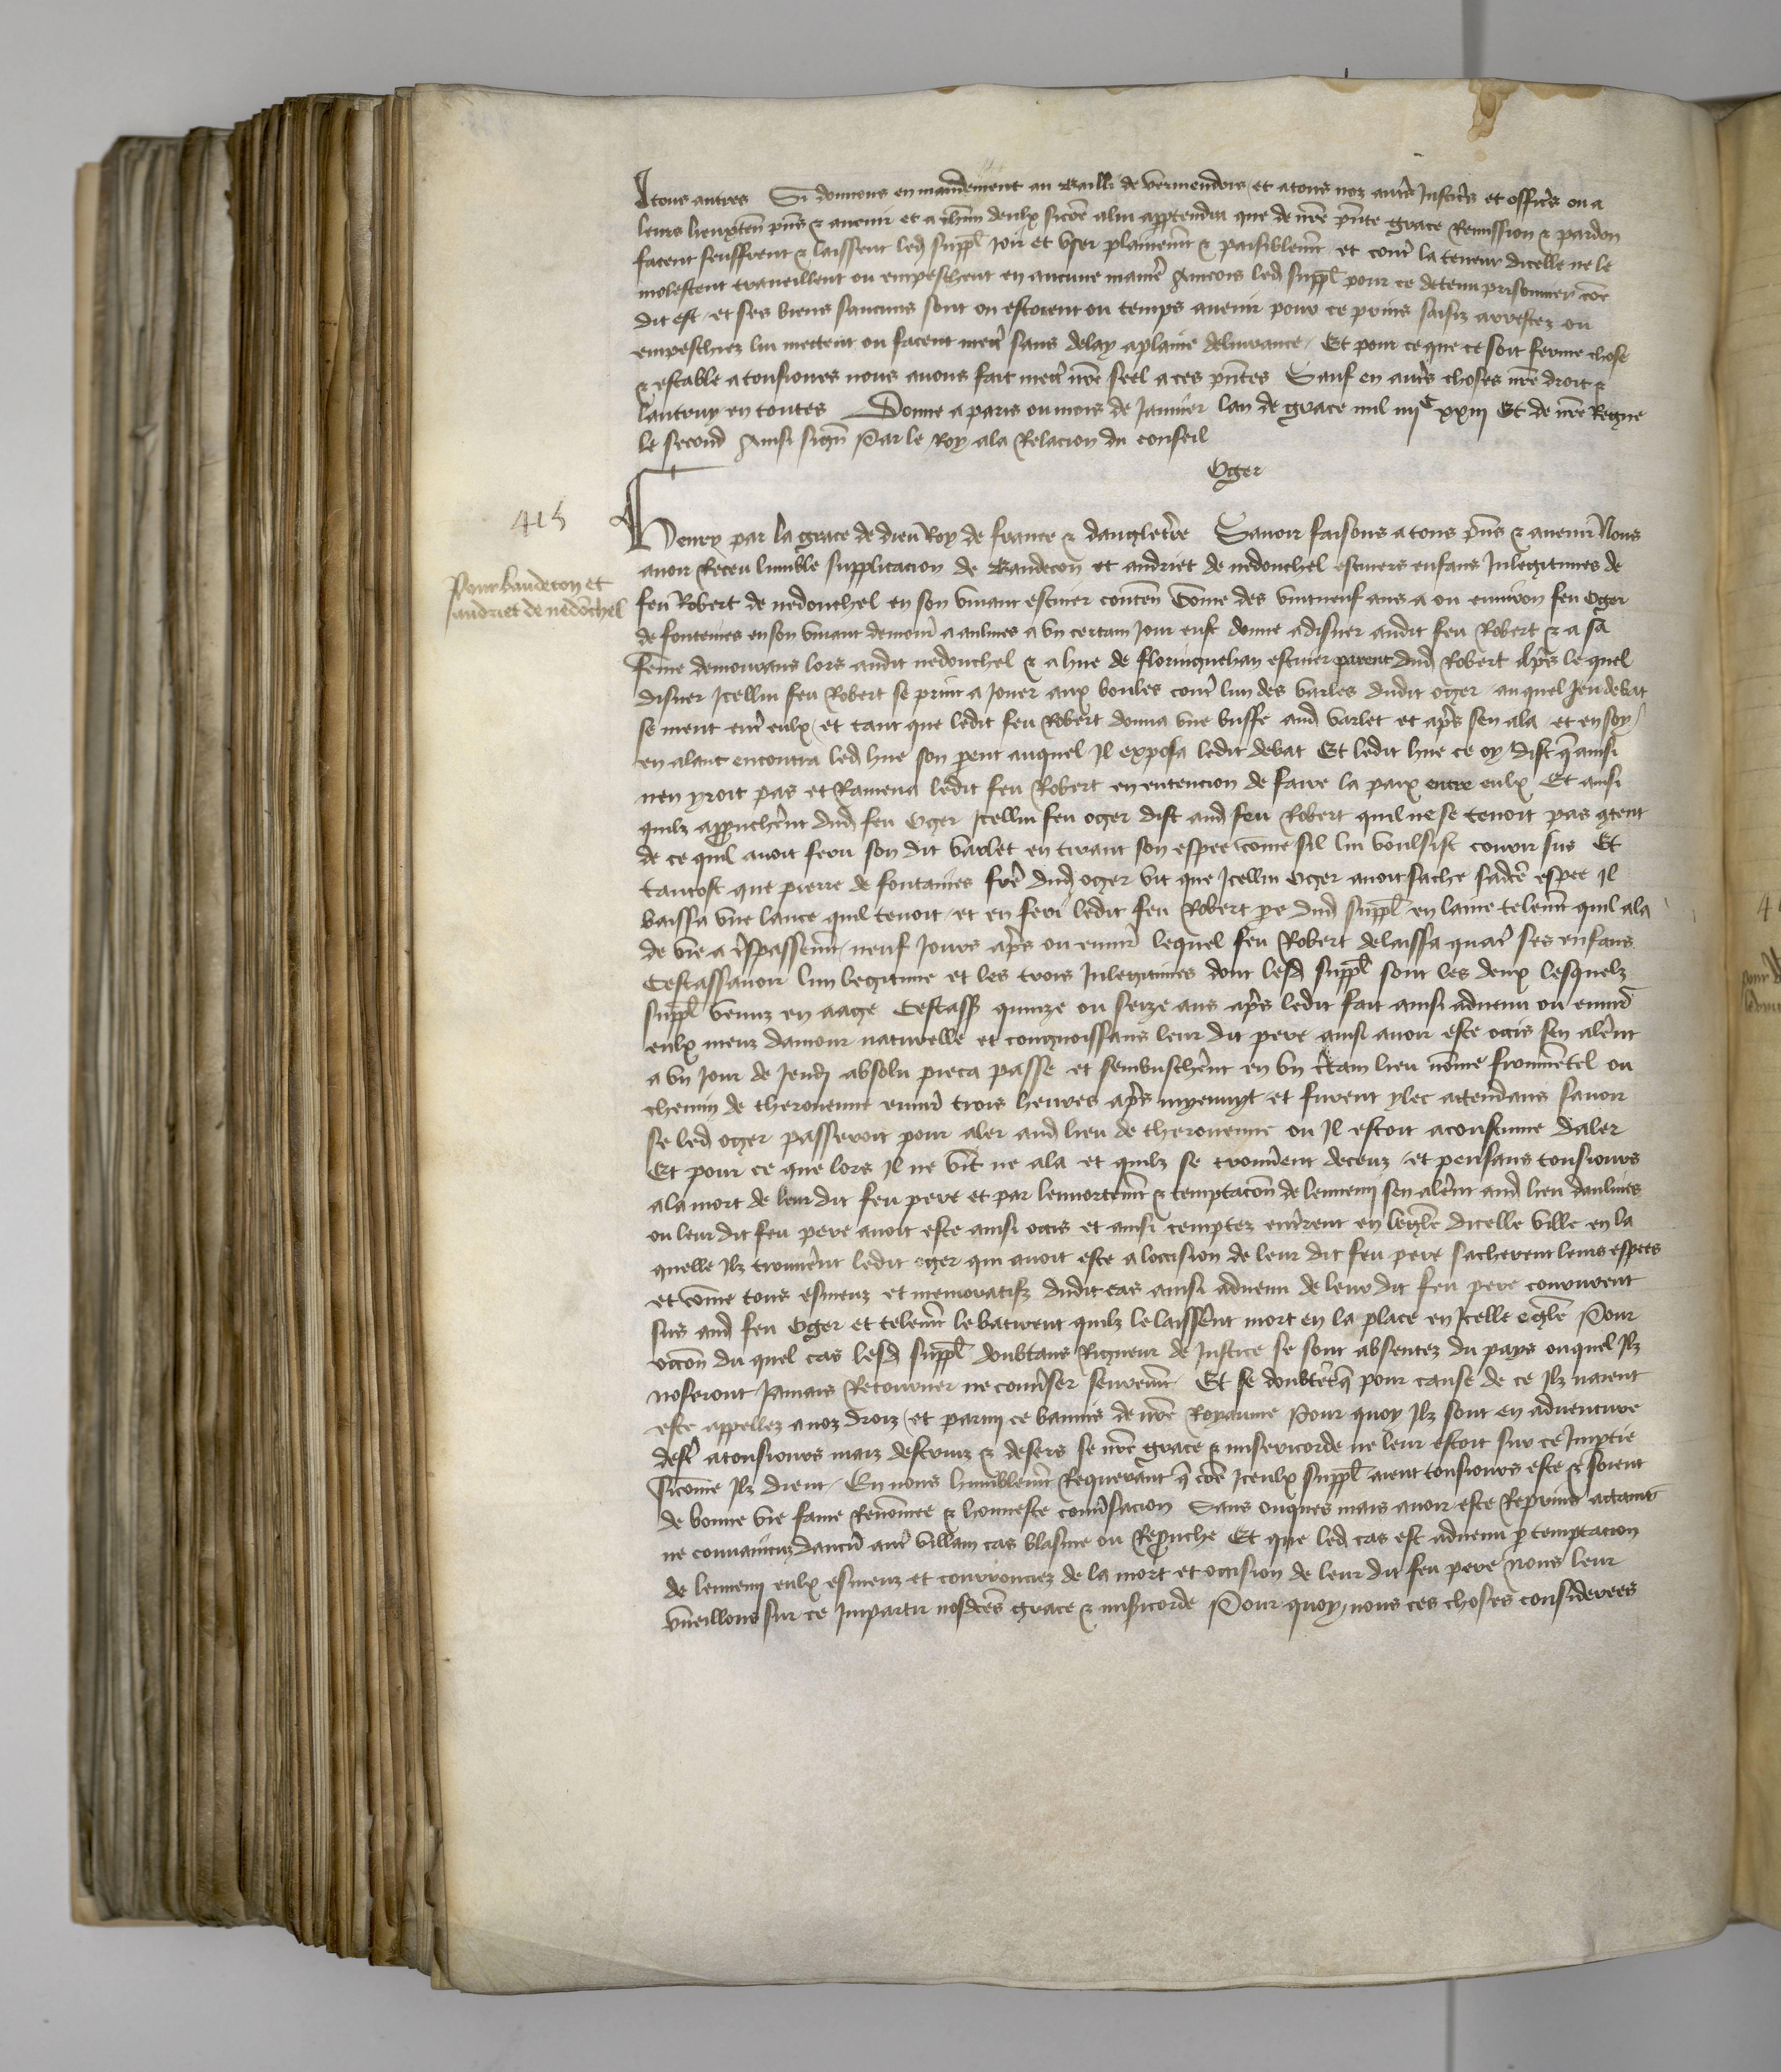 A tous autres Si donnons en mandement au Bailli de vermendois et a tous noz autrs Justicrs et officrs ou a
leurs lieuxten pns & avenir et a chun deulx sicoe a lui appartendra que de nre pnte grace Remission & pardon
facent seuffrent & laissent led suppl Joir et user plainemt & paisiblemt et contr la teneur dicelle ne le
molestent traveillent ou empeschent en aucune manie Aincois led suppl pour ce detenu prisonnier coe
dit est et ses biens saucuns sont ou estoient ou temps avenir pour ce prins saisiz arrestez ou
empeschiez lui mectent ou facent mectr sans delay a plaine delivrance Et pour ce que ce soit ferme chose
& estable a tousiours nous avons fait mectr nre seel a ces pntes Sauf en autrs choses nre droit &
lautruy en toutes Donne a paris ou mois de Janvier lan de grace mil iiiic xxiii Et de nre Regne
le second Ainsi sign Par le Roy a la Relacion du conseil
Oger
415
Henry par la grace de dieu Roy de france & dangletrre Savoir faisons a tous pns & avenir Nous
Pour baudecon et
andriet de nedonchel
avoir Receu lumble supplicacion de Baudecon et andriet de nedonchel escuiers enfans Inlegitimes de
feu Robert de nedonchel en son vivant escuier conten Come des vintneuf ans a ou environ feu Oger
de fontenies en son vivant demour a aulnies a un certain Jour eust donne a disner audit feu Robert & a sa
feme demourans lors audit nedonchel & a hue de floringuehan escuier parent dud Robert aprs lequel
disner Icellui feu Robert se print a Jouer aux boules contr lun des varles dudit oger auquel Jeu debat
se meut entr eulx et tant que ledit feu Robert donna une buffe aud varlet et aprs sen ala et en soy
en alant encontra led hue son pent auquel Il exposa ledit debat Et ledit hue ce oy dist q ainsi
nen yroit pas et Ramena ledit feu Robert en entencion de faire la paix entre eulx Et ainsi
quilz approuchernt dud feu Oger Icellui feu oger dist aud feu Robert quil ne se tenoit pas gtent
de ce quil avoit feru son dit varlet en tirant son espee come sil lui voulsist courir sus Et
tantost que pierre de fontaines frer dud oger vit que Icellui Oger avoit sache sadce espee Il
baissa une lance quil tenoit et en feri ledit feu Robert pe dud suppl en laine telemt quil ala
de vie a trspassemt neuf Jours aprs ou envir lequel feu Robert delaissa quatr ses enfans
Cestassavoir lun legitime et les trois Inlegitimes dont lesd suppl sont les deux lesquelz
suppl venuz en aage Cestass quinze ou seize ans aprs ledit fait ainsi advenu ou envir
eulx meuz damour naturelle et congnoissans leur dit pere ainsi avoir este occis sen alernt
a un Jour de Jeudi absolu pieca passe et sembuschernt en un crtain lieu nome fromentel ou
chemin de therouenne envir trois heures aprs myenuyt et furent ylec attendans savoir
se led oger passeroit pour aler aud lieu de therouenne ou Il estoit acoustume daler
Et pour ce que lors Il ne vint ne ala et quilz se trouverent deceuz et pensans tousiours
a la mort de leur dit feu pere et par lennortemt & temptacon de lennemi sen alernt aud lieu daulnies
ou leur dit feu pere avoit este ainsi occis et ainsi temptez entrrent en legle dicelle ville en la
quelle Ilz trouvernt ledit oger qui avoit este a loccision de leur dit feu pere sacherent leurs espees
et come tous esmeuz et memoratifz dudit cas ainsi advenu de leur dit feu pere coururent
sus aud feu Oger et telemt le batirent quilz le laissernt mort en la place en Icelle egle Pour
occon du quel cas lesd suppl doubtans Rigueur de Justice se sont absentez du pays ouquel Ilz
noseront Jamais Retourner ne convrser seuremt Et se doubtent q pour cause de ce Ilz naient
este appellez a noz droiz et parmi ce bannis de nre Royaume Pour quoy Ilz sont en adventure
destr a tousiours mais destruiz & desers se nre grace & misericorde ne leur estoit sur ce Imptie
Sicome Ilz dient En nous humblemt Requerant q coe Iceulx suppl aient tousiours este & soient
de bonne vie fame Renomee & honneste convrsacion Sans onques mais avoir este Reprins actains
ne convaincuz daucun autr villain cas blasme ou Reprouche Et que led cas est advenu p temptacion
de lennemi eulx esmeuz et courrouciez de la mort et occision de leur dit feu pere Nous leur
vueillons sur ce Impartir nosdces grace & misicorde Pour quoy nous ces choses considerees